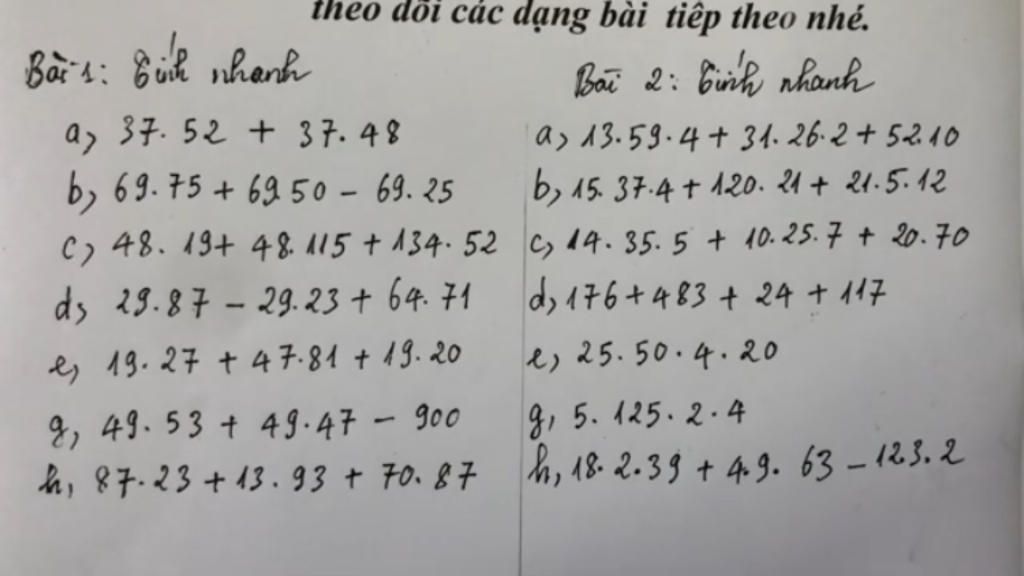 theo dõi các dạng bài tiếp theo nhé.
Bài 1: Tính nhanh
a, 37. 52 + 37. 48
b, 69. 75 + 69. 50 - 69. 25
c, 48. 19 + 48. 115 + 134. 52
d, 29. 87 - 29. 23 + 64. 71
e, 19. 27 + 47. 81 + 19. 20
g, 49. 53 + 49. 47 - 900
h, 87. 23 + 13. 93 + 70. 87
Bài 2: Tính nhanh
a, 13. 59. 4 + 31. 26. 2 + 52. 10
b, 15. 37. 4 + 120. 21 + 21. 5. 12
c, 14. 35. 5 + 10. 25. 7 + 20. 70
d, 176 + 483 + 24 + 117
e, 25. 50. 4. 20
g, 5. 125. 2. 4
h, 18. 2. 39 + 4. 9. 63 - 123. 2